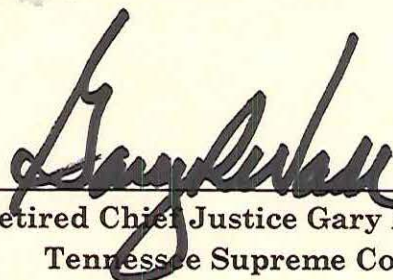 etired Chief Justice Gary
Tennessee Supreme Co